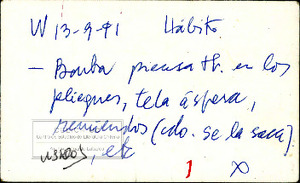 W 13-9-91 Hábito
— Bomba piensa tb. en los
pliegues, tela áspera,
remiendos (cdo. se la saca)
, etc
1 X